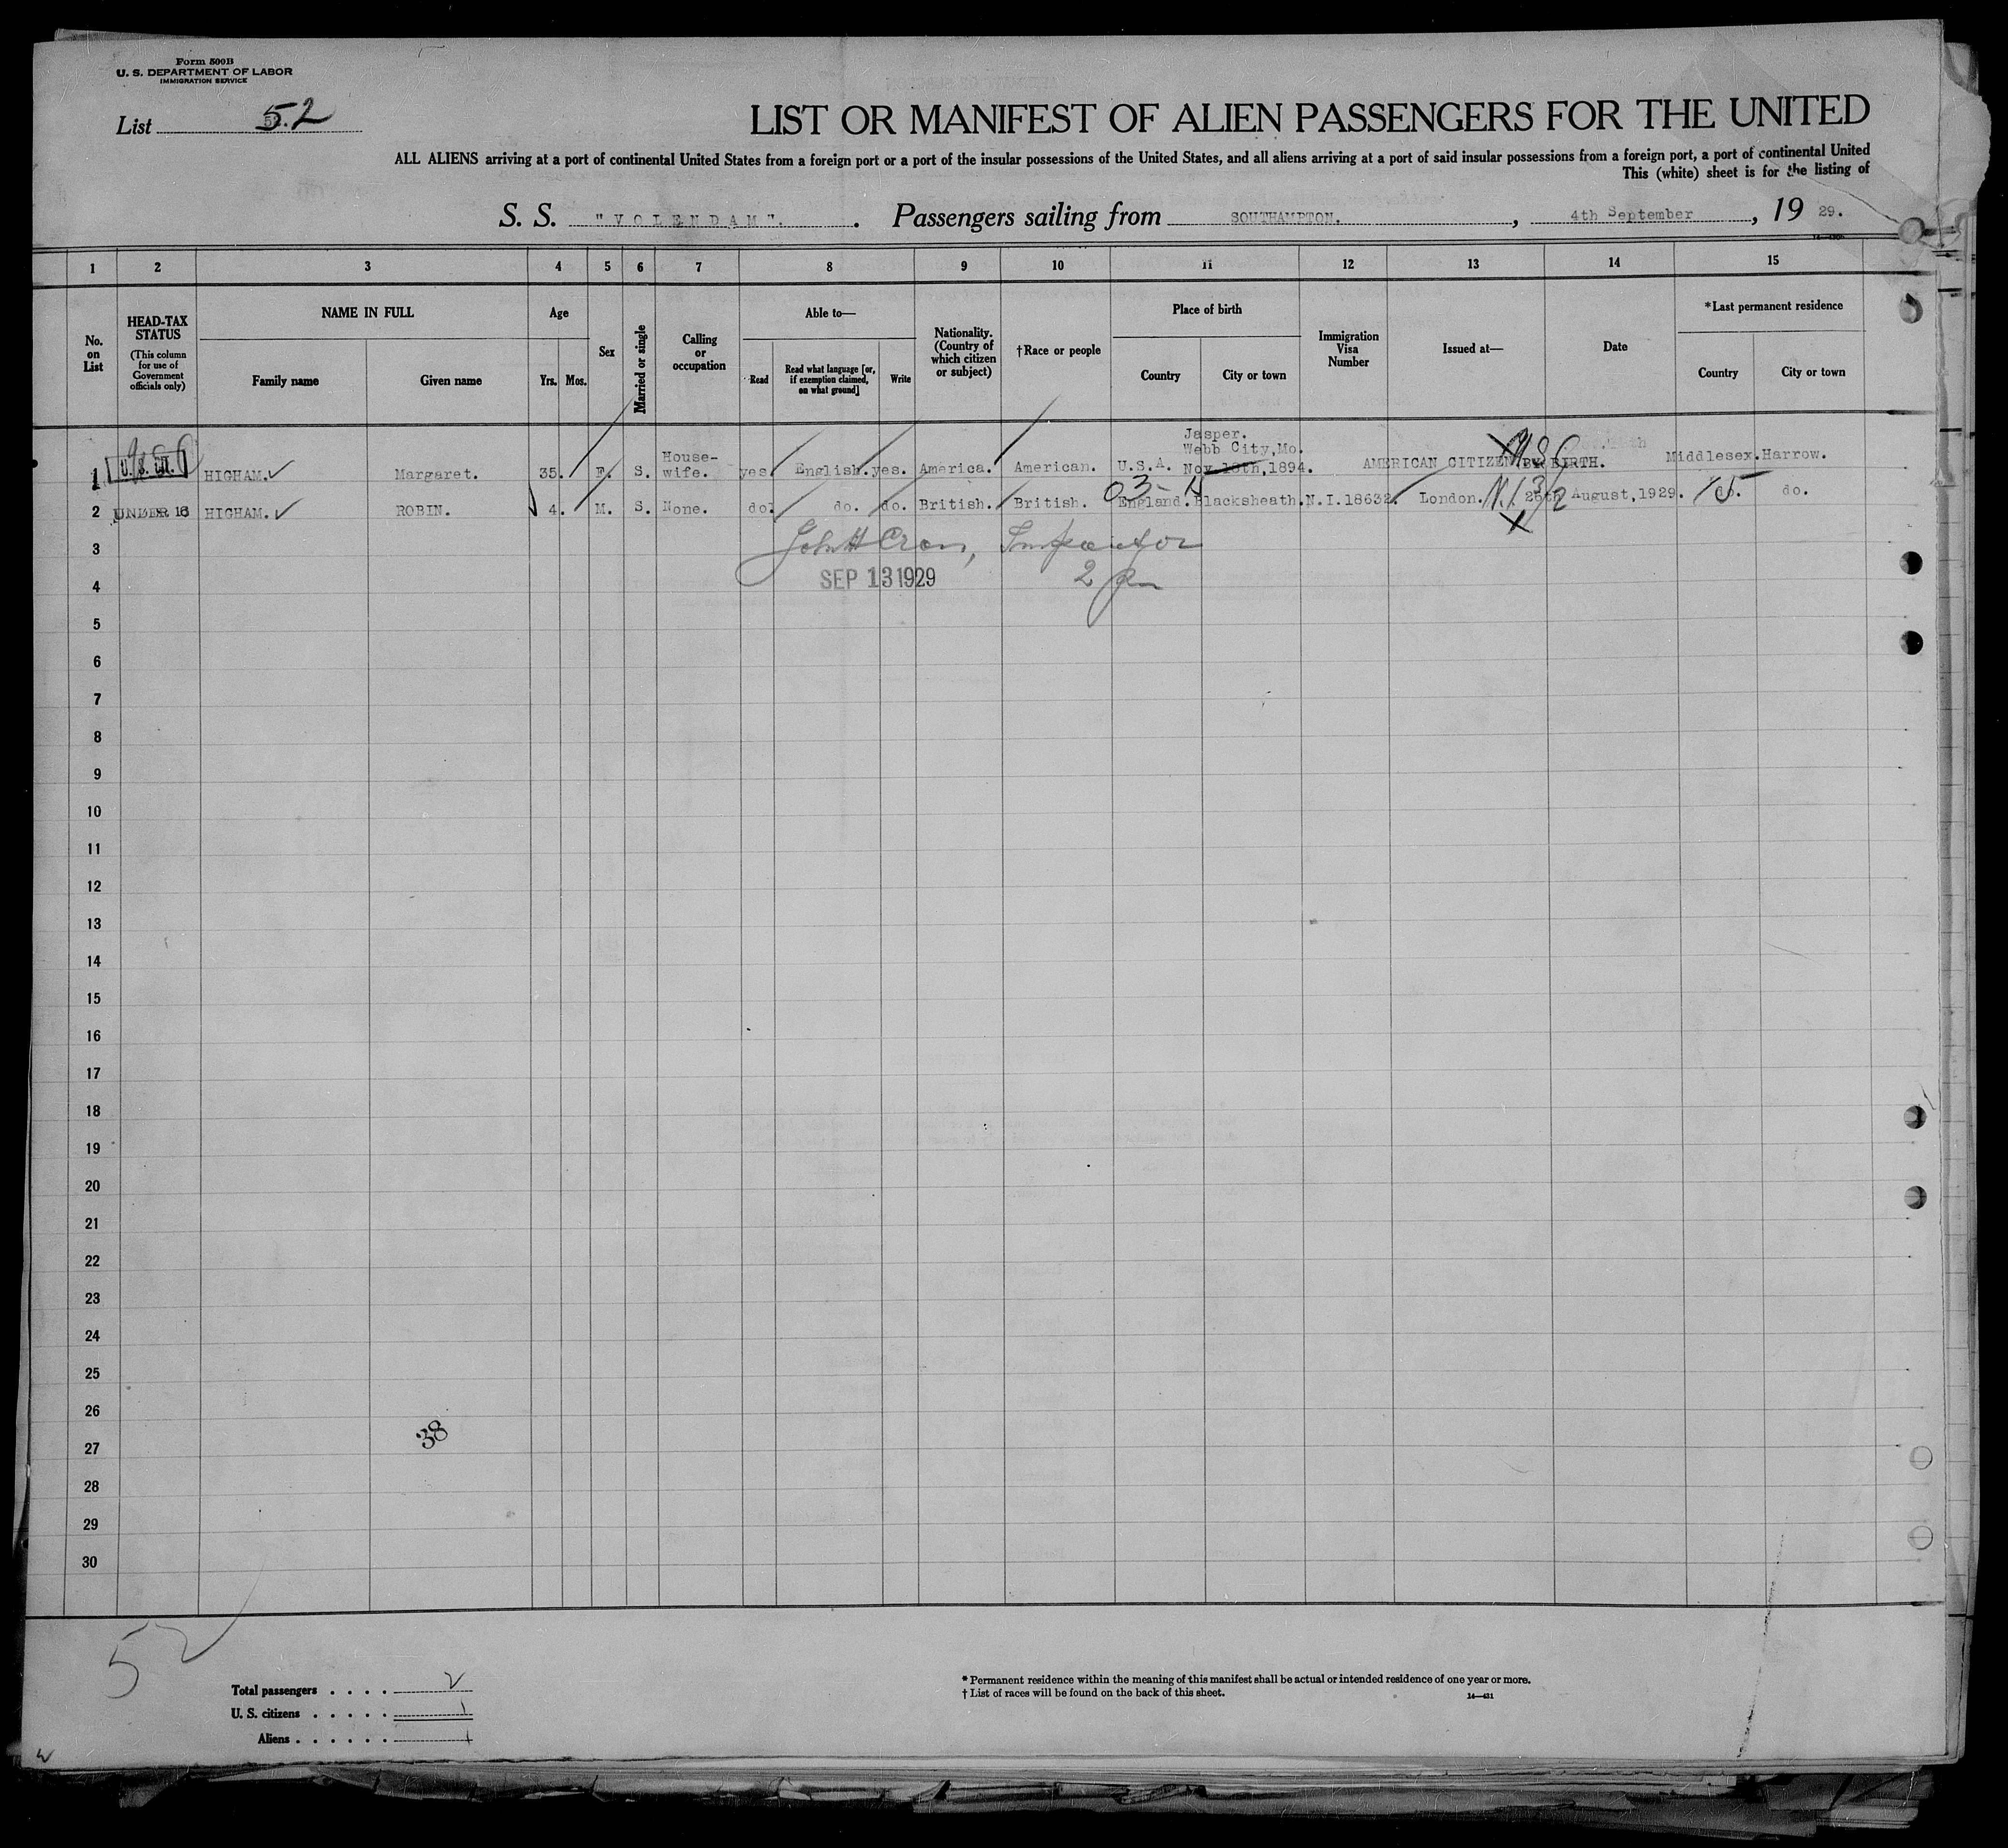 Form 500B
U. S. DEPARTMENT OF LABOR
IMMIGRATION SERVICE
List 52
LIST OR MANIFEST OF ALIEN PASSENGERS FOR THE UNITED
ALL ALIENS arriving at a port of continental United States from a foreign port or a port of the insular possessions of the United States, and all aliens arriving at a port of said insular possessions from a foreign port, a port of continental United
This (white) sheet is for the listing of
S. S. "VOLENDAM". Passengers sailing from SOUTHAMPTON. , 4th September , 19 29.
1 2 3 4 5 6 7 8 9 10 11 12 13 14 15
No. on List
HEAD-TAX STATUS (This column for use of Government officials only)
NAME IN FULL
Family name
Given name
Age
Yrs. Mos.
Sex
Married or single
Calling or occupation
Able to—
Read
Read what language [or, if exemption claimed, on what ground]
Write
Nationality. (Country of which citizen or subject)
†Race or people
Place of birth
Country
City or town
Immigration Visa Number
Issued at—
Date
*Last permanent residence
Country
City or town
1 U. S. HIGHAM. Margaret. 35. F. S. House-wife. yes. English. yes. America. American. U.S.A. Jasper. Webb City, Mo. Nov 18th, 1894. AMERICAN CITIZEN BY BIRTH. Middlesex. Harrow.
2 UNDER 16 HIGHAM. ROBIN. 4. M. S. None. do. do. do. British. British. England. Blacksheath. N.I.18632. London. August, 1929. do. do.
03-
3
Inspector
4
SEP 13 1929
2
5
6
7
8
9
10
11
12
13
14
15
16
17
18
19
20
21
22
23
24
25
26
27
38
28
29
30
52
Total passengers . . . . 2
U. S. citizens . . . . . 1
Aliens . . . . . . 1
* Permanent residence within the meaning of this manifest shall be actual or intended residence of one year or more.
† List of races will be found on the back of this sheet.
14—431